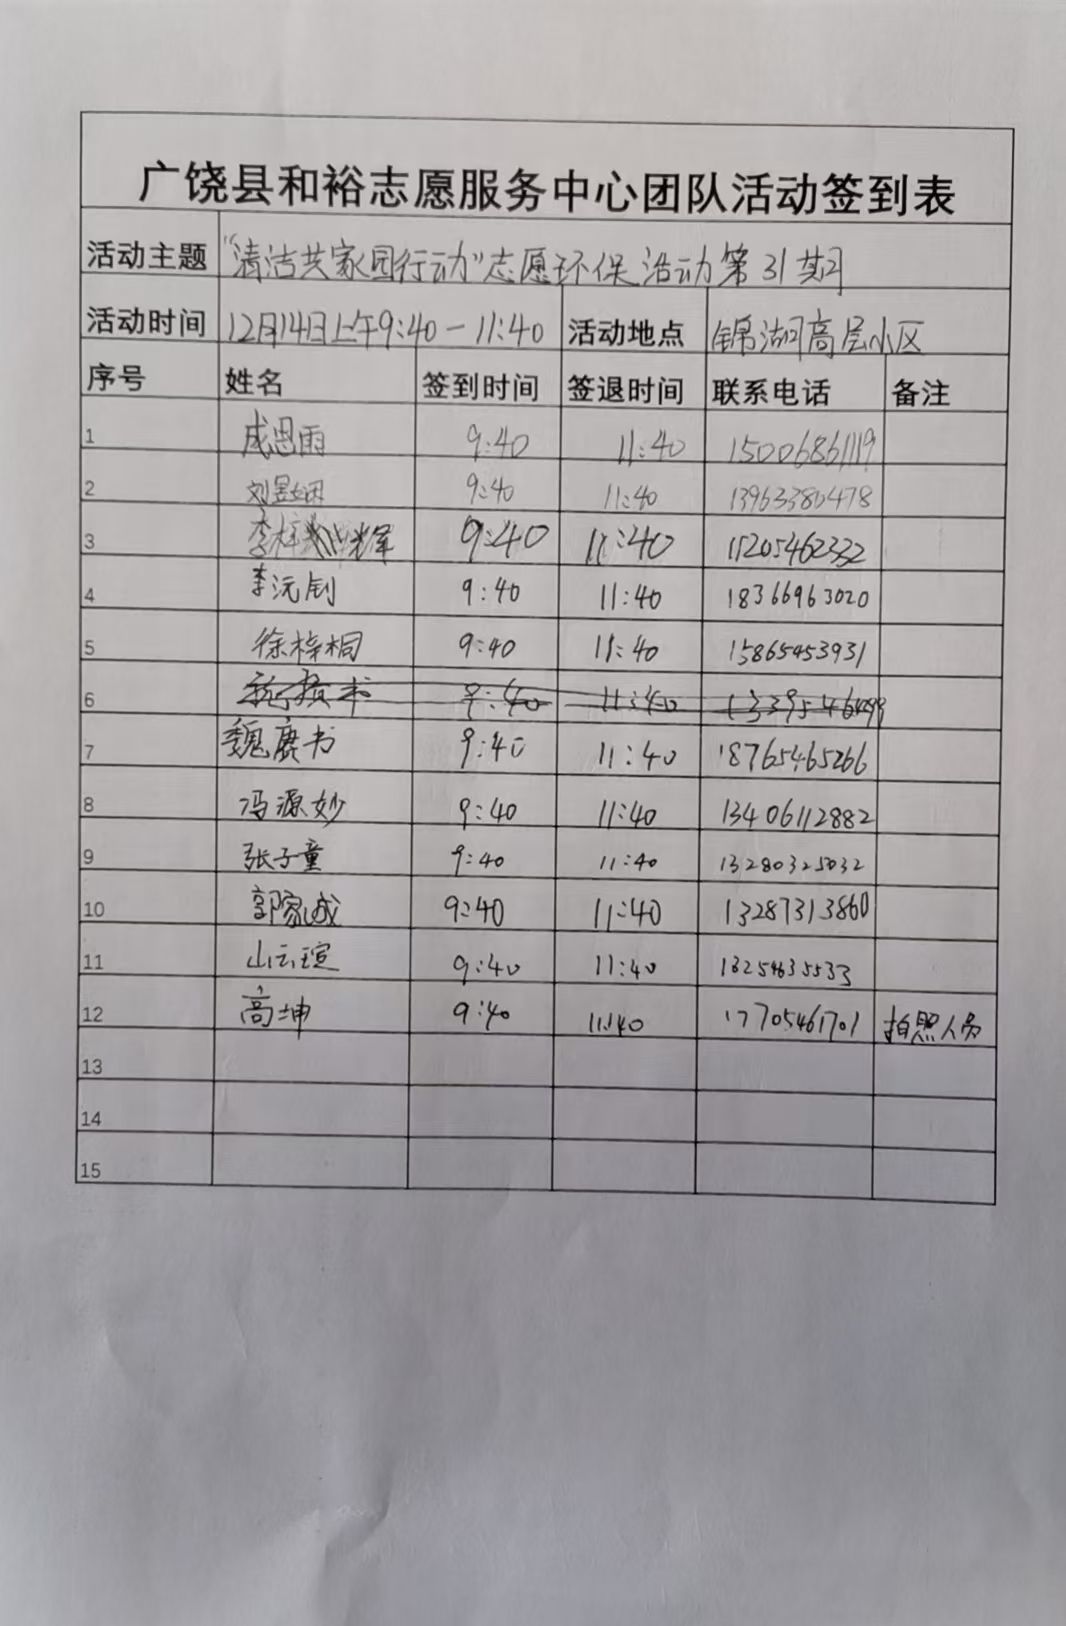 广饶县和裕志愿服务中心团队活动签到表
活动主题 "清洁共家园行动"志愿环保活动第31期
活动时间 12月14日上午9:40-11:40 活动地点 锦湖高层小区
序号 姓名 签到时间 签退时间 联系电话 备注
1 成思雨 9:40 11:40 15006861119
2 刘昱妡 9:40 11:40 13963380478
3 李梓辉 9:40 11:40 15205462332
4 李沅钊 9:40 11:40 18366963020
5 徐梓桐 9:40 11:40 15865453931
6 9:40 11:40
7 魏赓书 9:40 11:40 18765465266
8 冯源妙 9:40 11:40 13406112882
9 张子童 9:40 11:40 13280325032
10 郭家诚 9:40 11:40 13287313860
11 山云瑄 9:40 11:40 13254635533
12 高坤 9:40 11:40 17705461701 拍照人员
13
14
15